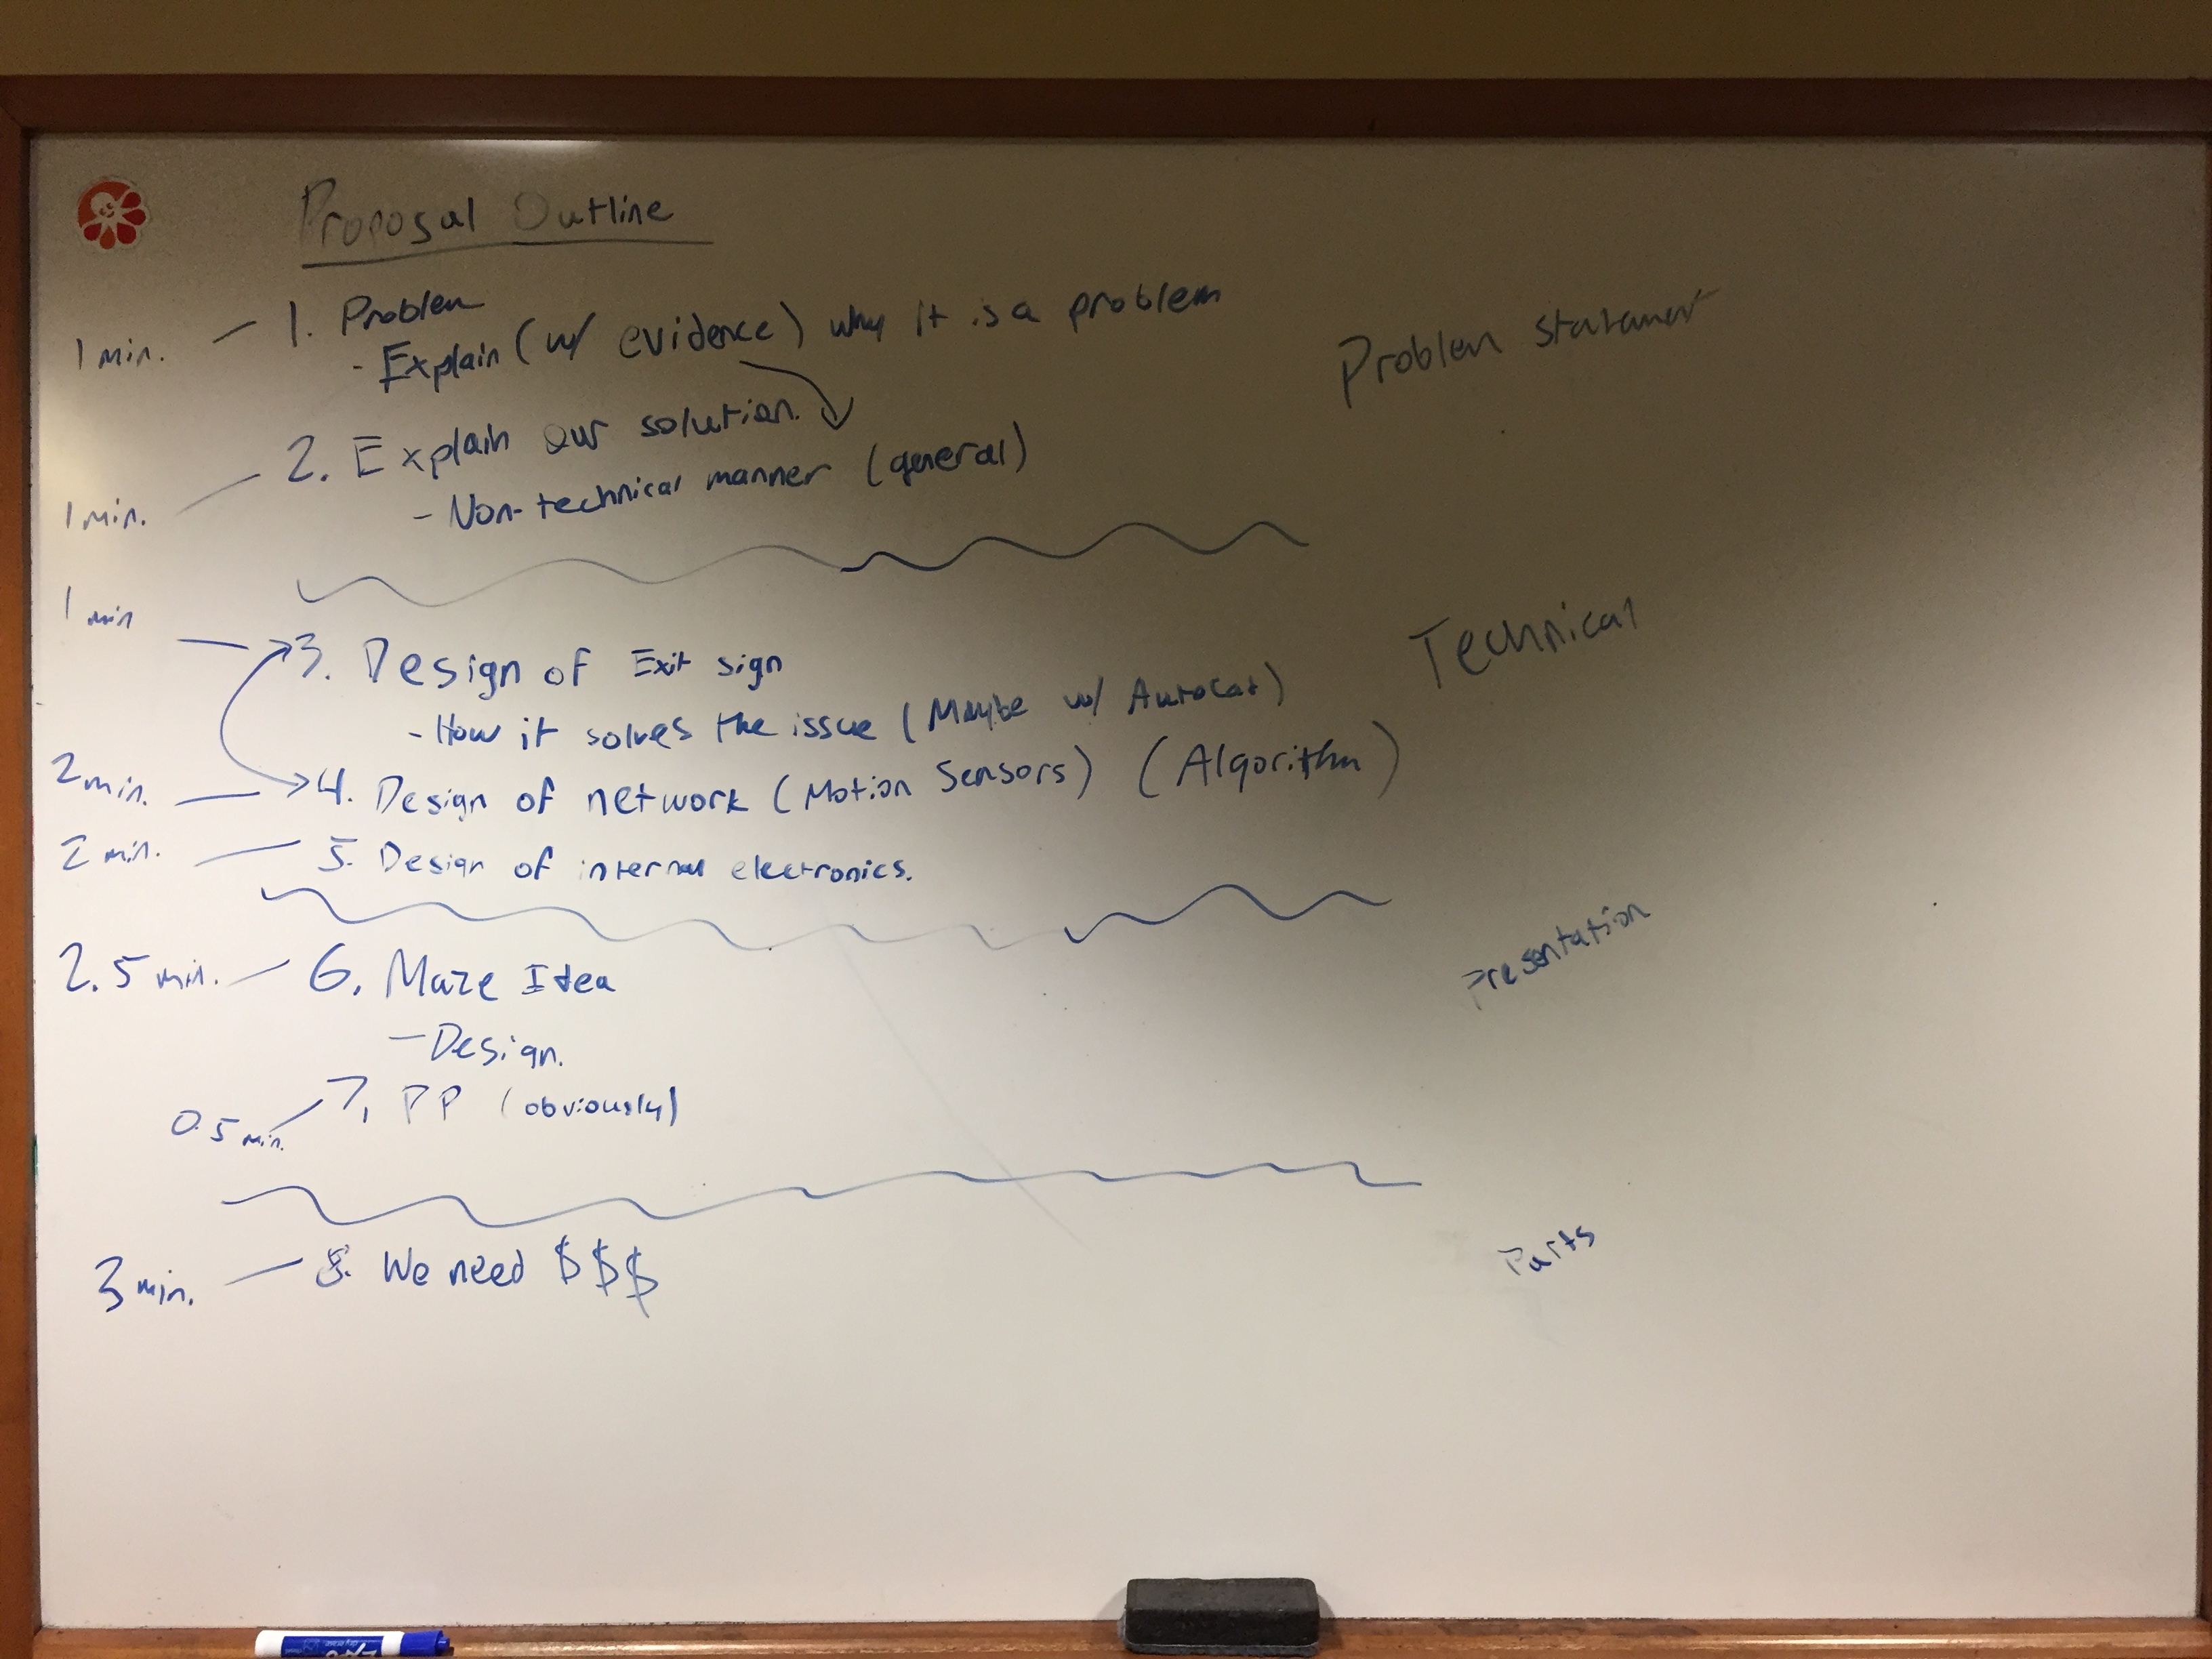 Proposal Outline
1 min. — 1. Problem
- Explain (w/ evidence) why it is a problem
Problem statement
1 min. — 2. Explain our solution.
- Non-technical manner (general)
1 min — 3. Design of Exit sign
Technical
- How it solves the issue (Maybe w/ AutoCad)
2 min. — 4. Design of network (Motion Sensors) (Algorithm)
2 min. — 5. Design of internal electronics.
2.5 min. — 6. Maze Idea
Presentation
- Design.
0.5 min. — 7. PP (obviously)
3 min. — 8. We need $$$
Parts